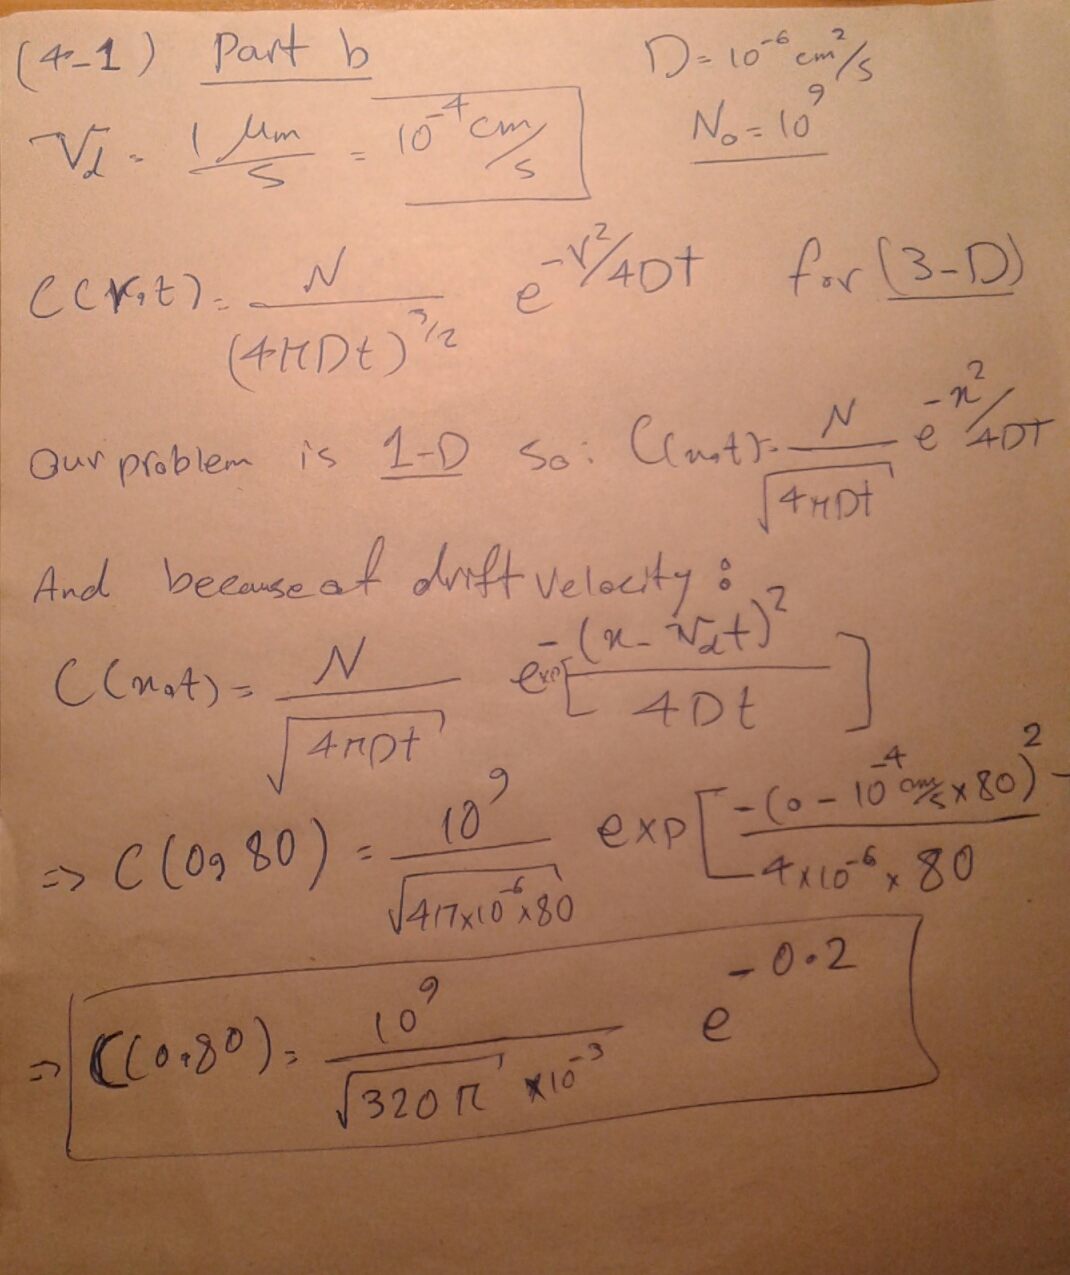 (4-1) Part b D = 10⁻⁶ cm²/s
V_d = 1 μm/s = 10⁻⁴ cm/s N₀ = 10⁹
C(r,t) = N/(4πDt)^(3/2) e^(-r²/4Dt) for (3-D)
Our problem is 1-D so: C(x,t) = N/√(4πDt) e^(-x²/4Dt)
And because of drift velocity:
C(x,t) = N/√(4πDt) exp[-(x - V_d t)²/4Dt]
⇒ C(0,80) = 10⁹/√(4π×10⁻⁶×80) exp[-(0 - 10⁻⁴ cm/s × 80)²/4×10⁻⁶×80
⇒ C(0,80) = 10⁹/√(320π) × 10⁻³ e^(-0.2)